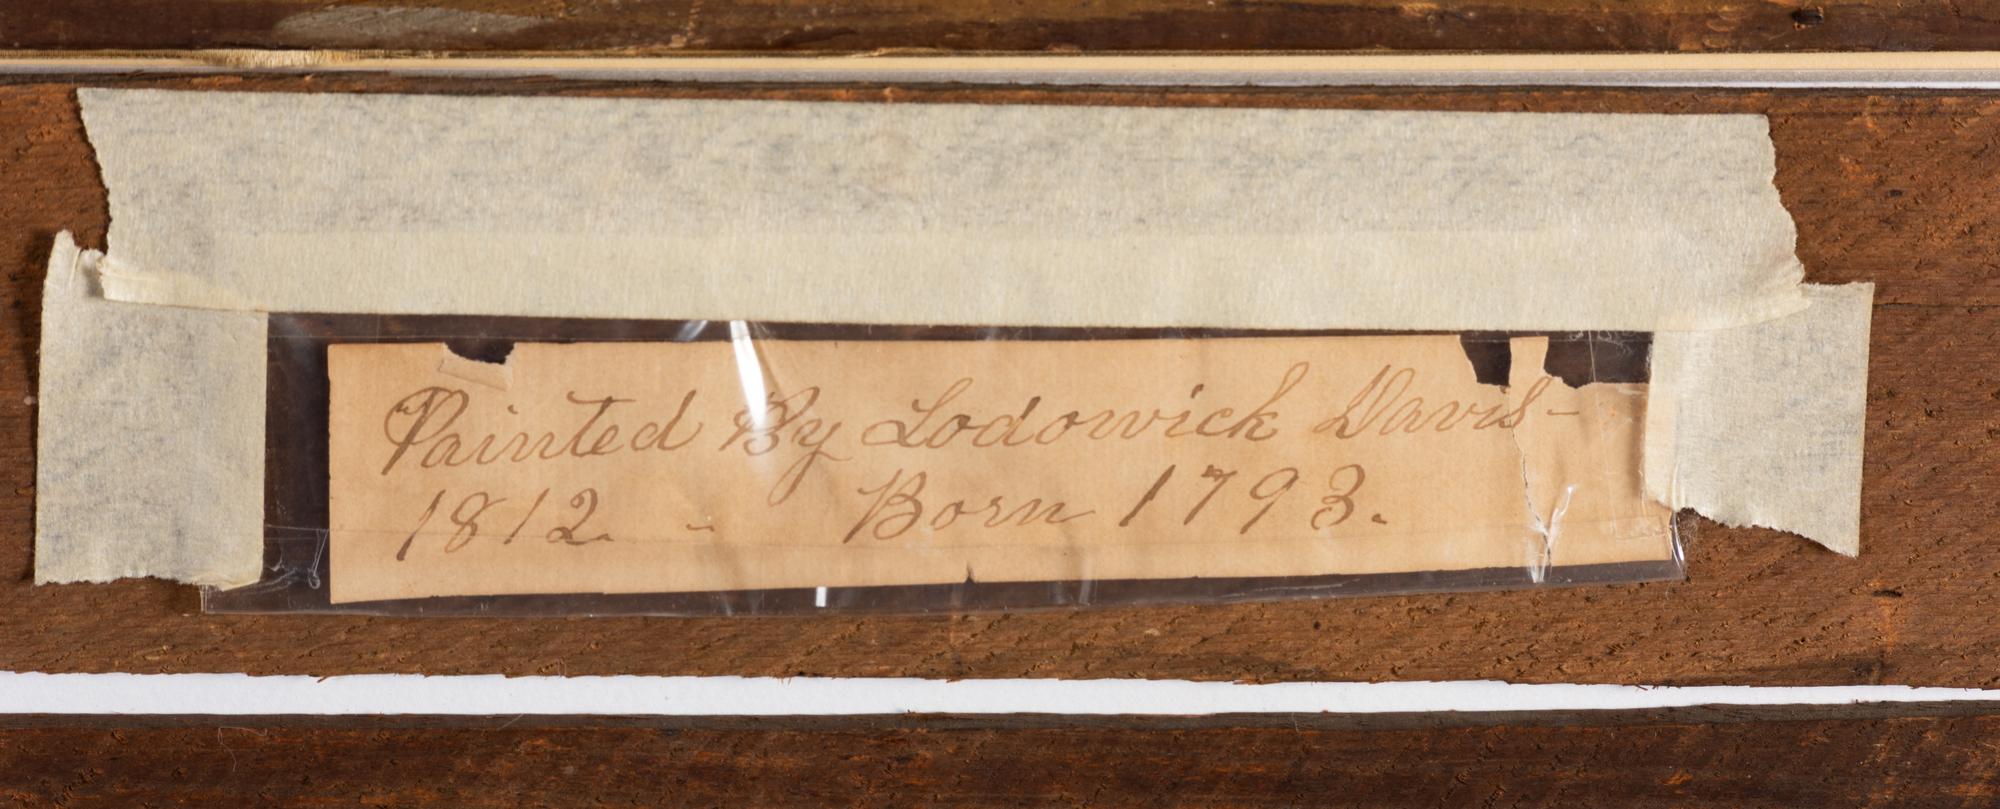 Painted By Lodowick Davis-
1812. - Born 1793.